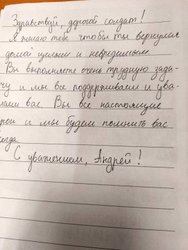 Здравствуй, дорогой солдат!
Я желаю тебе чтобы ты вернулся
домой целым и невредимым
Вы выполняете очень трудную зада-
чу и мы все поддерживаем и ува-
жаем вас. Вы все настоящие
герои и мы будем помнить вас
всегда
С уважением, Андрей!